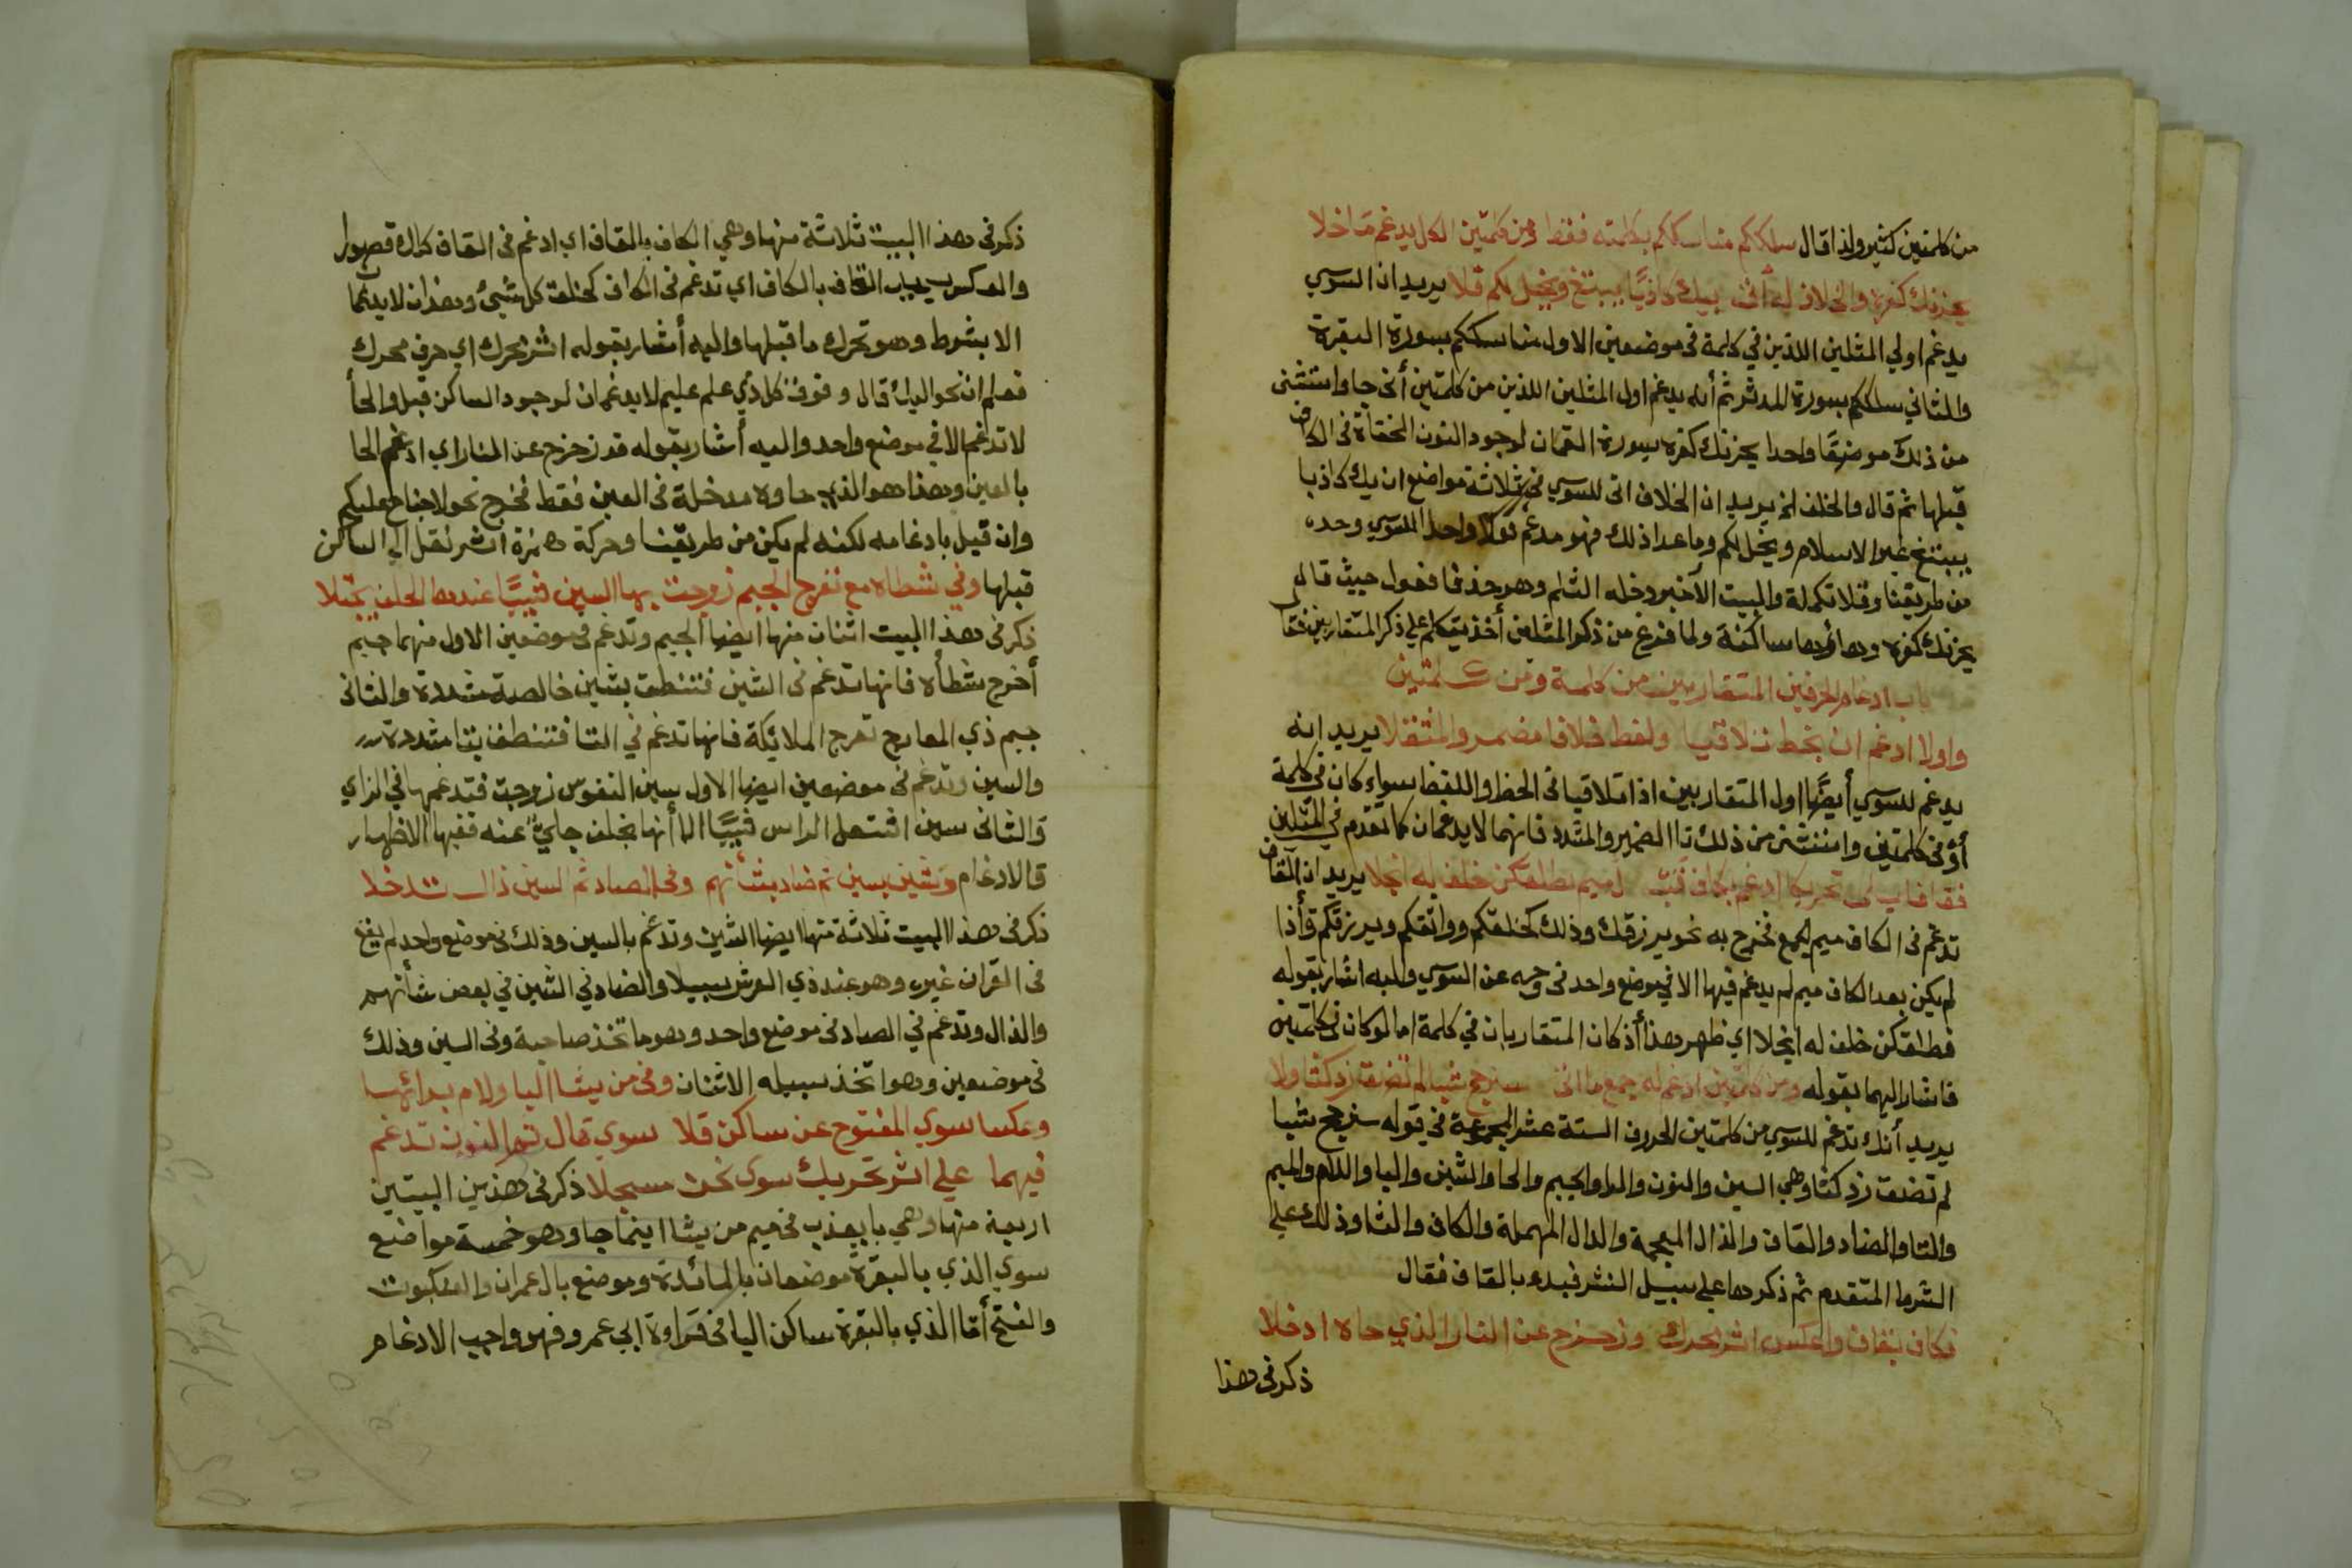 من كلمتين كثير ولذا قال سلككم مناسككم بكلمته فقط ومن كلمتين الكل يدغم ما خلا
يحزنك كفره والخلاف له أتى بيك كاذبا يبتغ ويخل لكم قلا يريد ان السوسي
يدغم اولي المثلين اللذين في كلمة في موضعين الاول مناسككم بسورة البقرة
والثاني سلككم بسورة المدثر ثم أنه يدغم اول المثلين اللذين من كلمتين أنى جا واستثنى
من ذلك موضعا واحدا يحزنك كفره بسورة لقمان لوجود النون المخفاة في الكاف
قبلها ثم قال والخلف لخ يريد ان الخلاف اتى للسوسي في ثلاثة مواضع ان يك كاذبا
يبتغ غير الاسلام ويخل لكم وما عدا ذلك فهو مدغم قولا واحدا للسوسي وحده
من طريقنا وقلا تكملة والبيت الآخير دخله الثلم وهو حذف فا فعول حيث قال
يحزنك كفره وهاؤها ساكنة ولما فرغ من ذكر المثلين أخذ يتكلم على ذكر المتقاربين فقال
باب ادغام الحرفين المتقاربين من كلمة ومن كلمتين
واولا ادغم ان بخط تلاقيا ولفظ خلافا مضمر والمثقلا يريد انه
يدغم للسوسي أيضا اول المتقاربين اذا تلاقيا في الخط واللفظ سواء كان في كلمة
أو في كلمتين واستثنى من ذلك تا الضمير والمشدد فانهما لا يدغمان كما تقدم في المثلين
فقافا تحريكا ادغم بكاف ميم بطلقكن خلف له انجلا يريد ان القاف
تدغم في الكاف ميم لجمع فخرج به نحو يرزقك وذلك كخلقكم وواثقكم ويرزقكم وأذا
لم يكن بعد الكاف ميم لم يدغم فيها الا في موضع واحد في وجه عن السوسي واليه اشار بقوله
فطلقكن خلف له انجلا اي ظهر وهذا أذ كان المتقاربان في كلمة اما لو كان في كلمتين
فاشار اليهما بقوله ومن كلمتين ادغم له جمع ما اتى سنرجح شيا لم تضق زد كثا ولا
يريد أنك تدغم للسوسي من كلمتين الحروف الستة عشر المجموعة في قوله سنرجح شيا
لم تضق زد كثا وهي السين والنون والرا والجيم والحا والشين واليا واللام والميم
والتا والضاد والقاف والذال المعجمة والدال المهملة والكاف والثا وذلك على
الشرط المتقدم ثم ذكرها على سبيل النشر فبدء بالقاف فقال
فكاف بقاف واعكس اثر تحرك وزحزح عن النار الذي حاه ادخلا
ذكر في هذا
ذكر في هذا البيت ثلاثة منها وهي الكاف بالقاف اي ادغم في القاف كلك قصورا
والعكس القاف بالكاف اي تدغم في الكاف كخلق كل شئ وهذان لا يدغما
الا بشرط وهو تحرك ما قبلها واليه أشار بقوله اثر تحرك اي حرف محرك
فعلم ان نحو اليك قال وفوق كل ذي علم عليم لا يدغمان لوجود الساكن قبل والحأ
لا تدغم الا في موضع واحد واليه أشار بقوله قد زحزح عن النار اي ادغم الحا
بالعين وهذا هو الذي حاوه مدخلة في العين فقط فخرج نحو لا جناح عليكم
وان قيل بادغامه لكنه لم يكن من طريقنا وحركة همزة اثر نقل الي الساكن
قبلها وفي شطاه مع تعرج الجيم زوجت بها السين شيبا عنده الخلف يجتلا
ذكر في هذا البيت اثنان منها ايضا الجيم وتدغم في موضعين الاول منهما جيم
أخرج شطأه فانها تدغم في الشين فتنطق بشين خالصة مشددة والثاني
جيم ذي المعارج تعرج الملائكة فانها تدغم في التا فتنطق بتا مشددة
والسين وتدغم في موضعين ايضا الاول سين النفوس زوجت فتدغمها في الزاي
والثاني سين اشتعل الراس شيبا الا أنها بخلف جائ عنه ففيها الاظهار
فالادغام وشين بسين ثم ضاد بشأنهم وفي الصاد ثم السين ذال تدخلا
ذكر في هذا البيت ثلاثة منها ايضا الشين وتدغم بالسين وذلك في موضع واحد لم يقع
في القران غيره وهو عند ذي العرش سبيلا والضاد في الشين في بعض شأنهم
والذال وتدغم في الصاد في موضع واحد وهو ما تخذ صاحبة وفي السين وذلك
في موضعين وهو اتخذ سبيله الاثنان وفي من يشا اليا ولام برائها
وعكسا سوي المفتوح عن ساكن قلا سوي قال ثم النون تدغم
فيهما على اثر تحريك سوى نحن مسجلا ذكر في هذين البيتين
اربعة منها وهي با يعذب في ميم من يشا اينما جا وهو خمسة مواضع
سوي الذي بالبقرة موضعان بالمائدة وموضع بال عمران والعنكبوت
والفتح أما الذي بالبقرة ساكن اليا في قراوة ابي عمرو فهو واجب الادغام